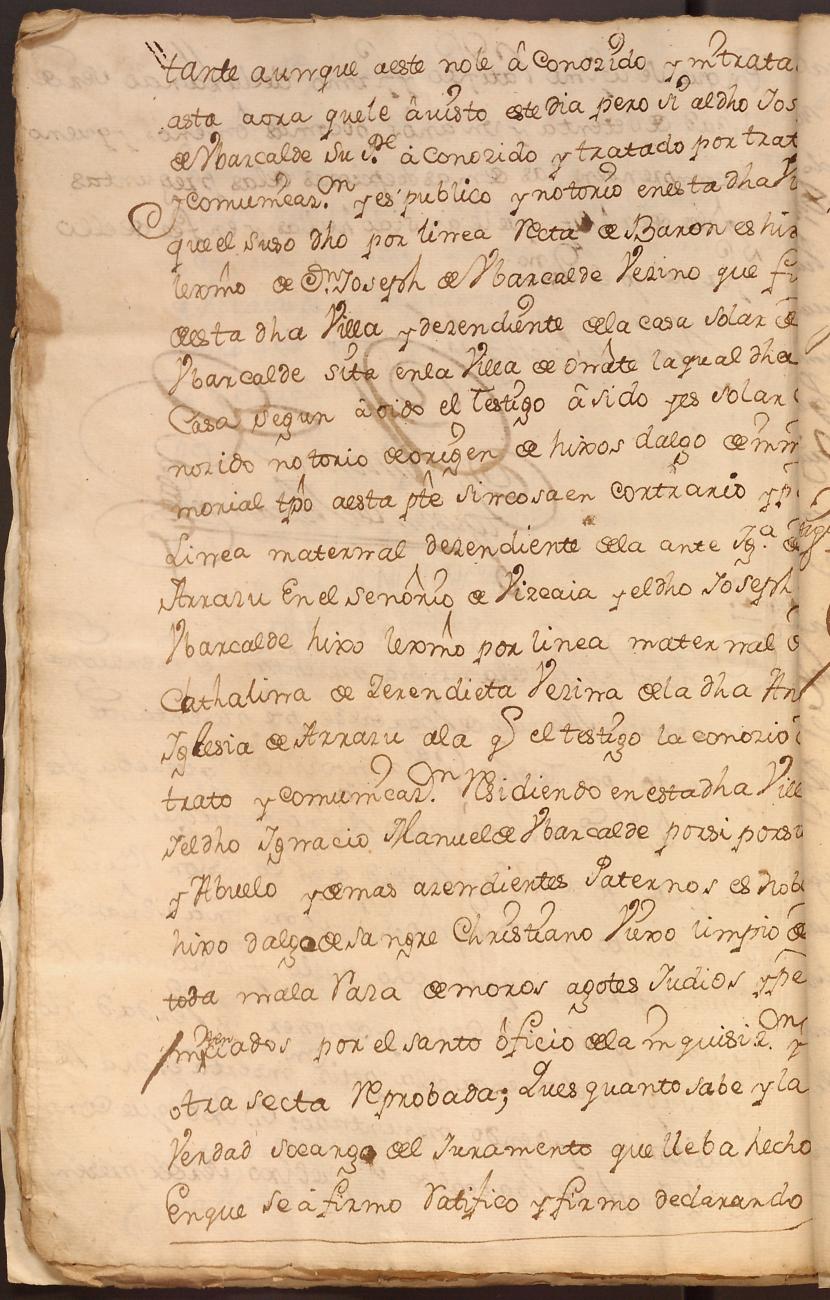 tante aunque aeste nole â Conozido y intrata
asta aora quele âuisto este dia pero si aldho Jos
de Ybarcalde su P.e â conozido y tratado por trat
y comunicaz.on y es publico y notorio enesta dha Vi
que el suso dho por linea Recta de Baron es hix
lexmo de Dn. Joseph de Ybarcalde Vezino que fu
de esta dha Villa y dezendiente dela casa solar de
Ybarcalde sita enla Villa de oñate la qual dha
Casa segun â oido el testigo â sido yes solar
nozido notorio de origen de hixos dalgo de inm
morial tpo aesta pte sin cosa en contrario y p
Linea maternal dezendiente dela ante Ig.a de
Arrazu En el señorio de Vizcaia y eldho Joseph
Ybarcalde hixo lexmo por linea maternal d
Cathalina de Zerendieta Vezina dela dha An
Iglesia de Arrazu ala q el testigo la conozio
trato y comunicaz.on Residiendo enesta dha Vill
Jeldho Ignacio Manuel de Ybarcalde porsi porsu
y Abuelo y demas azendientes Paternos es noble
hixo dalgo de sangre Christiano Viexo limpio de
toda mala Raza de moros agotes Judios y pe
por el santo ôficio dela inquisiz.on y
otra secta Reprobada; Ques quanto sabe y la
Verdad socargo del Juramento que lleba hecho
Enque se â firmo Ratifico y firmo declarando